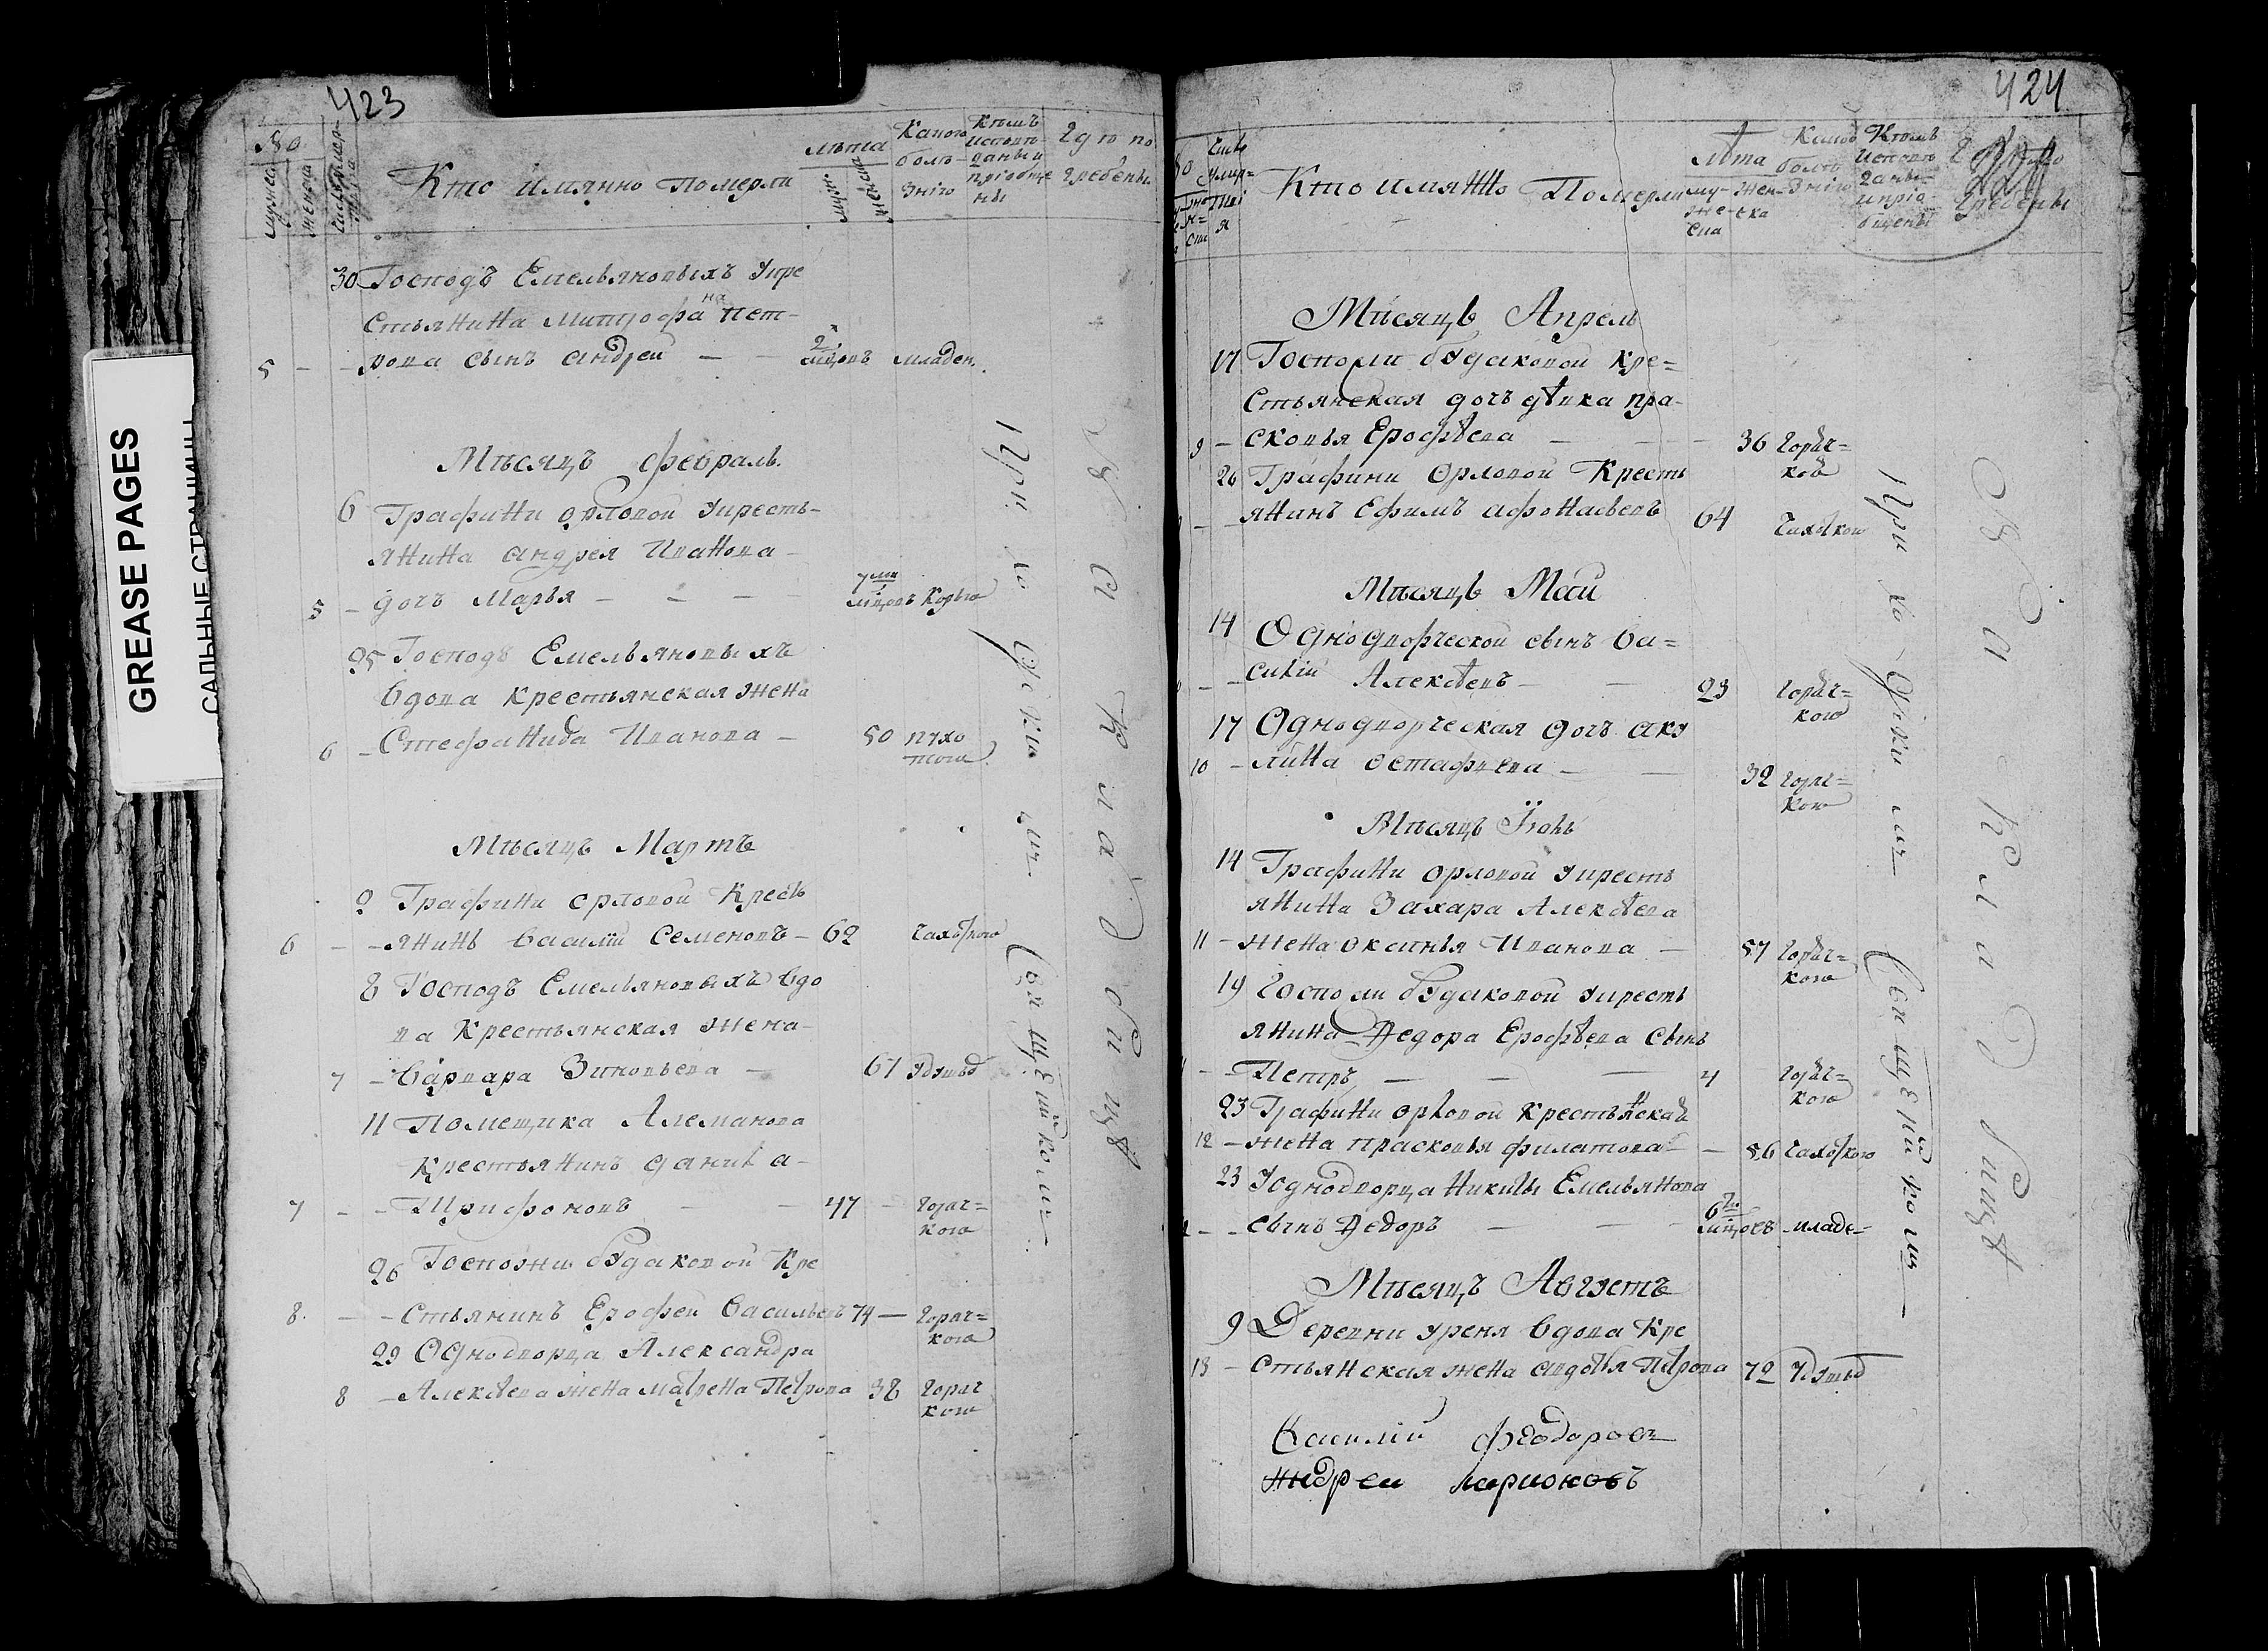 GREASE PAGES
САЛЬНЫЕ СТРАНИЦЫ
423
№
мужеска
женска
Кто имянно померли
лѣта
муже
женска
Какою
болѣ-
знію
Кѣмъ
исповѣ-
даны и
пріобще
ны
Гдѣ по
гребены
30 Господъ Емельяновыхъ У кре
стьянина Митрофана Пет-
5 - - рова сынъ Андрей — 2х мцовъ младен.
Мѣсяцъ февраль.
6 Графини Орловой У кресть-
янина Андрея Иванова
5 - дочь Марья - - - 7ми мцовъ Корью
25 Господъ Емельяновыхъ
вдова крестьянская жена
6 - Стефанида Иванова - 50
Мѣсяцъ Мартъ
2 Графини Орловой Кресть
6 - - янинъ Василій Семеновъ - 62 Чахоткою
8 Господъ Емельяновыхъ вдо
ва Крестьянская жена
7 - Варвара Зиновьева - 67 Удушьѣ
11 Помещика Алеманова
Крестьянинъ Данила
7 - - Трифоновъ - 47 - Горяч=
кою
26 Госпожи Будаковой Кре
8. - - стьянинъ Ерофей Васильевъ 74 - Горяч=
кою
29 Однодворца Александра
8 - Алексѣева жена Матрена Петрова 38 Горяч
кою
Приходскимъ Священникомъ
На кладбищѣ
424
Число
умир-
тія
Кто имянно Померли
Лѣта
му-
же-
ска
жен-
ска
Какою
болѣ
знію
Кѣмъ
исповѣ
даны
и прio
бщены
Гдѣ
погребены
Мѣсяцъ Апрель
17 Госпожи Будаковой Кре=
стьянская дочь дѣвка Пра-
9 - сковья Ерофѣева - 36 Горяч=
кой
26 Графини Орловой Кресть
- - янинъ Ефимъ Афонасьевъ 64 Чахоткою
Мѣсяцъ Маій
14 Однодворческой сынъ Ва=
- - силій Алексѣевъ - 23 Горяч=
кою
17 Однодворческая дочь Аку
10 - лина Остафьева - 32 Горяч=
кою
Мѣсяцъ Іюнь
14 Графини Орловой У кресть
янина Захара Алексѣева
11 - жена Оксинья Иванова - 57 Горяч=
кою
19 Госпожи Будаковой У кресть
янина Федора Ерофѣева сынъ
- - Петръ - - - 4 Горяч=
кою
23 Графини Орловой Крестьянская
12 - жена Прасковья Филатова - 56 Чахоткою
23 У однодворца Никиты Емельянова
- - сынъ Федоръ - - 6ти мцовъ младе-
Мѣсяцъ Августъ
9 Деревни Уреня вдова Кре
13 - стьянская жена Авдотья Петрова 72 Удушьѣ
Приходскимъ Священникомъ
На кладбищѣ
Василій Феодоровъ
Андреи Ларионовъ